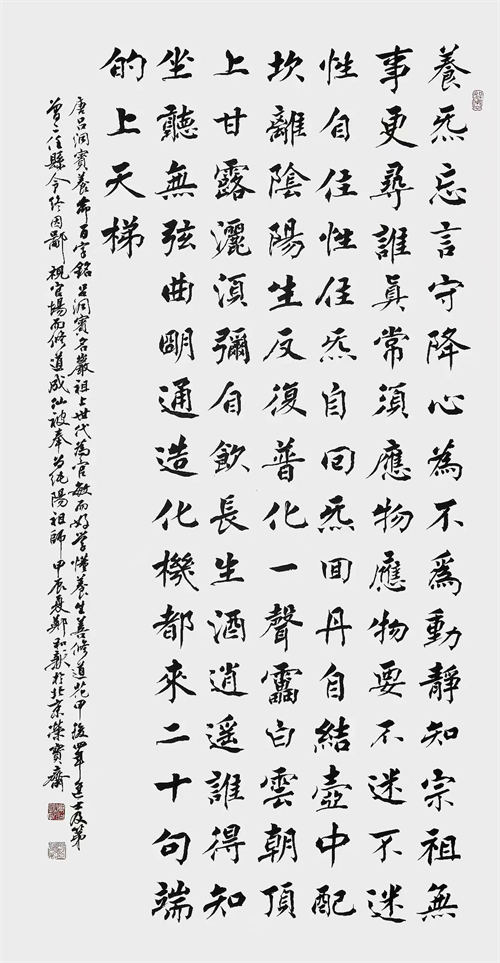 養炁忘言守降心為不爲動靜知宗祖無
事更尋誰真常須應物應物要不迷不迷
性自住性住炁自回炁回丹自結壺中配
坎離陰陽生反復普化一聲靁白雲朝頂
上甘露灑須彌自飲長生酒逍遙誰得知
坐聽無弦曲明通造化機都來二十句端
的上天梯
唐吕洞賓養炁百字銘吕洞賓名巖祖上世代為官敏而好學懂養生善修道花甲後四年進士及第
曾二任縣令終因鄙視官場而修道成仙被奉為純陽祖師甲辰夏鄭和於北京榮寶齋